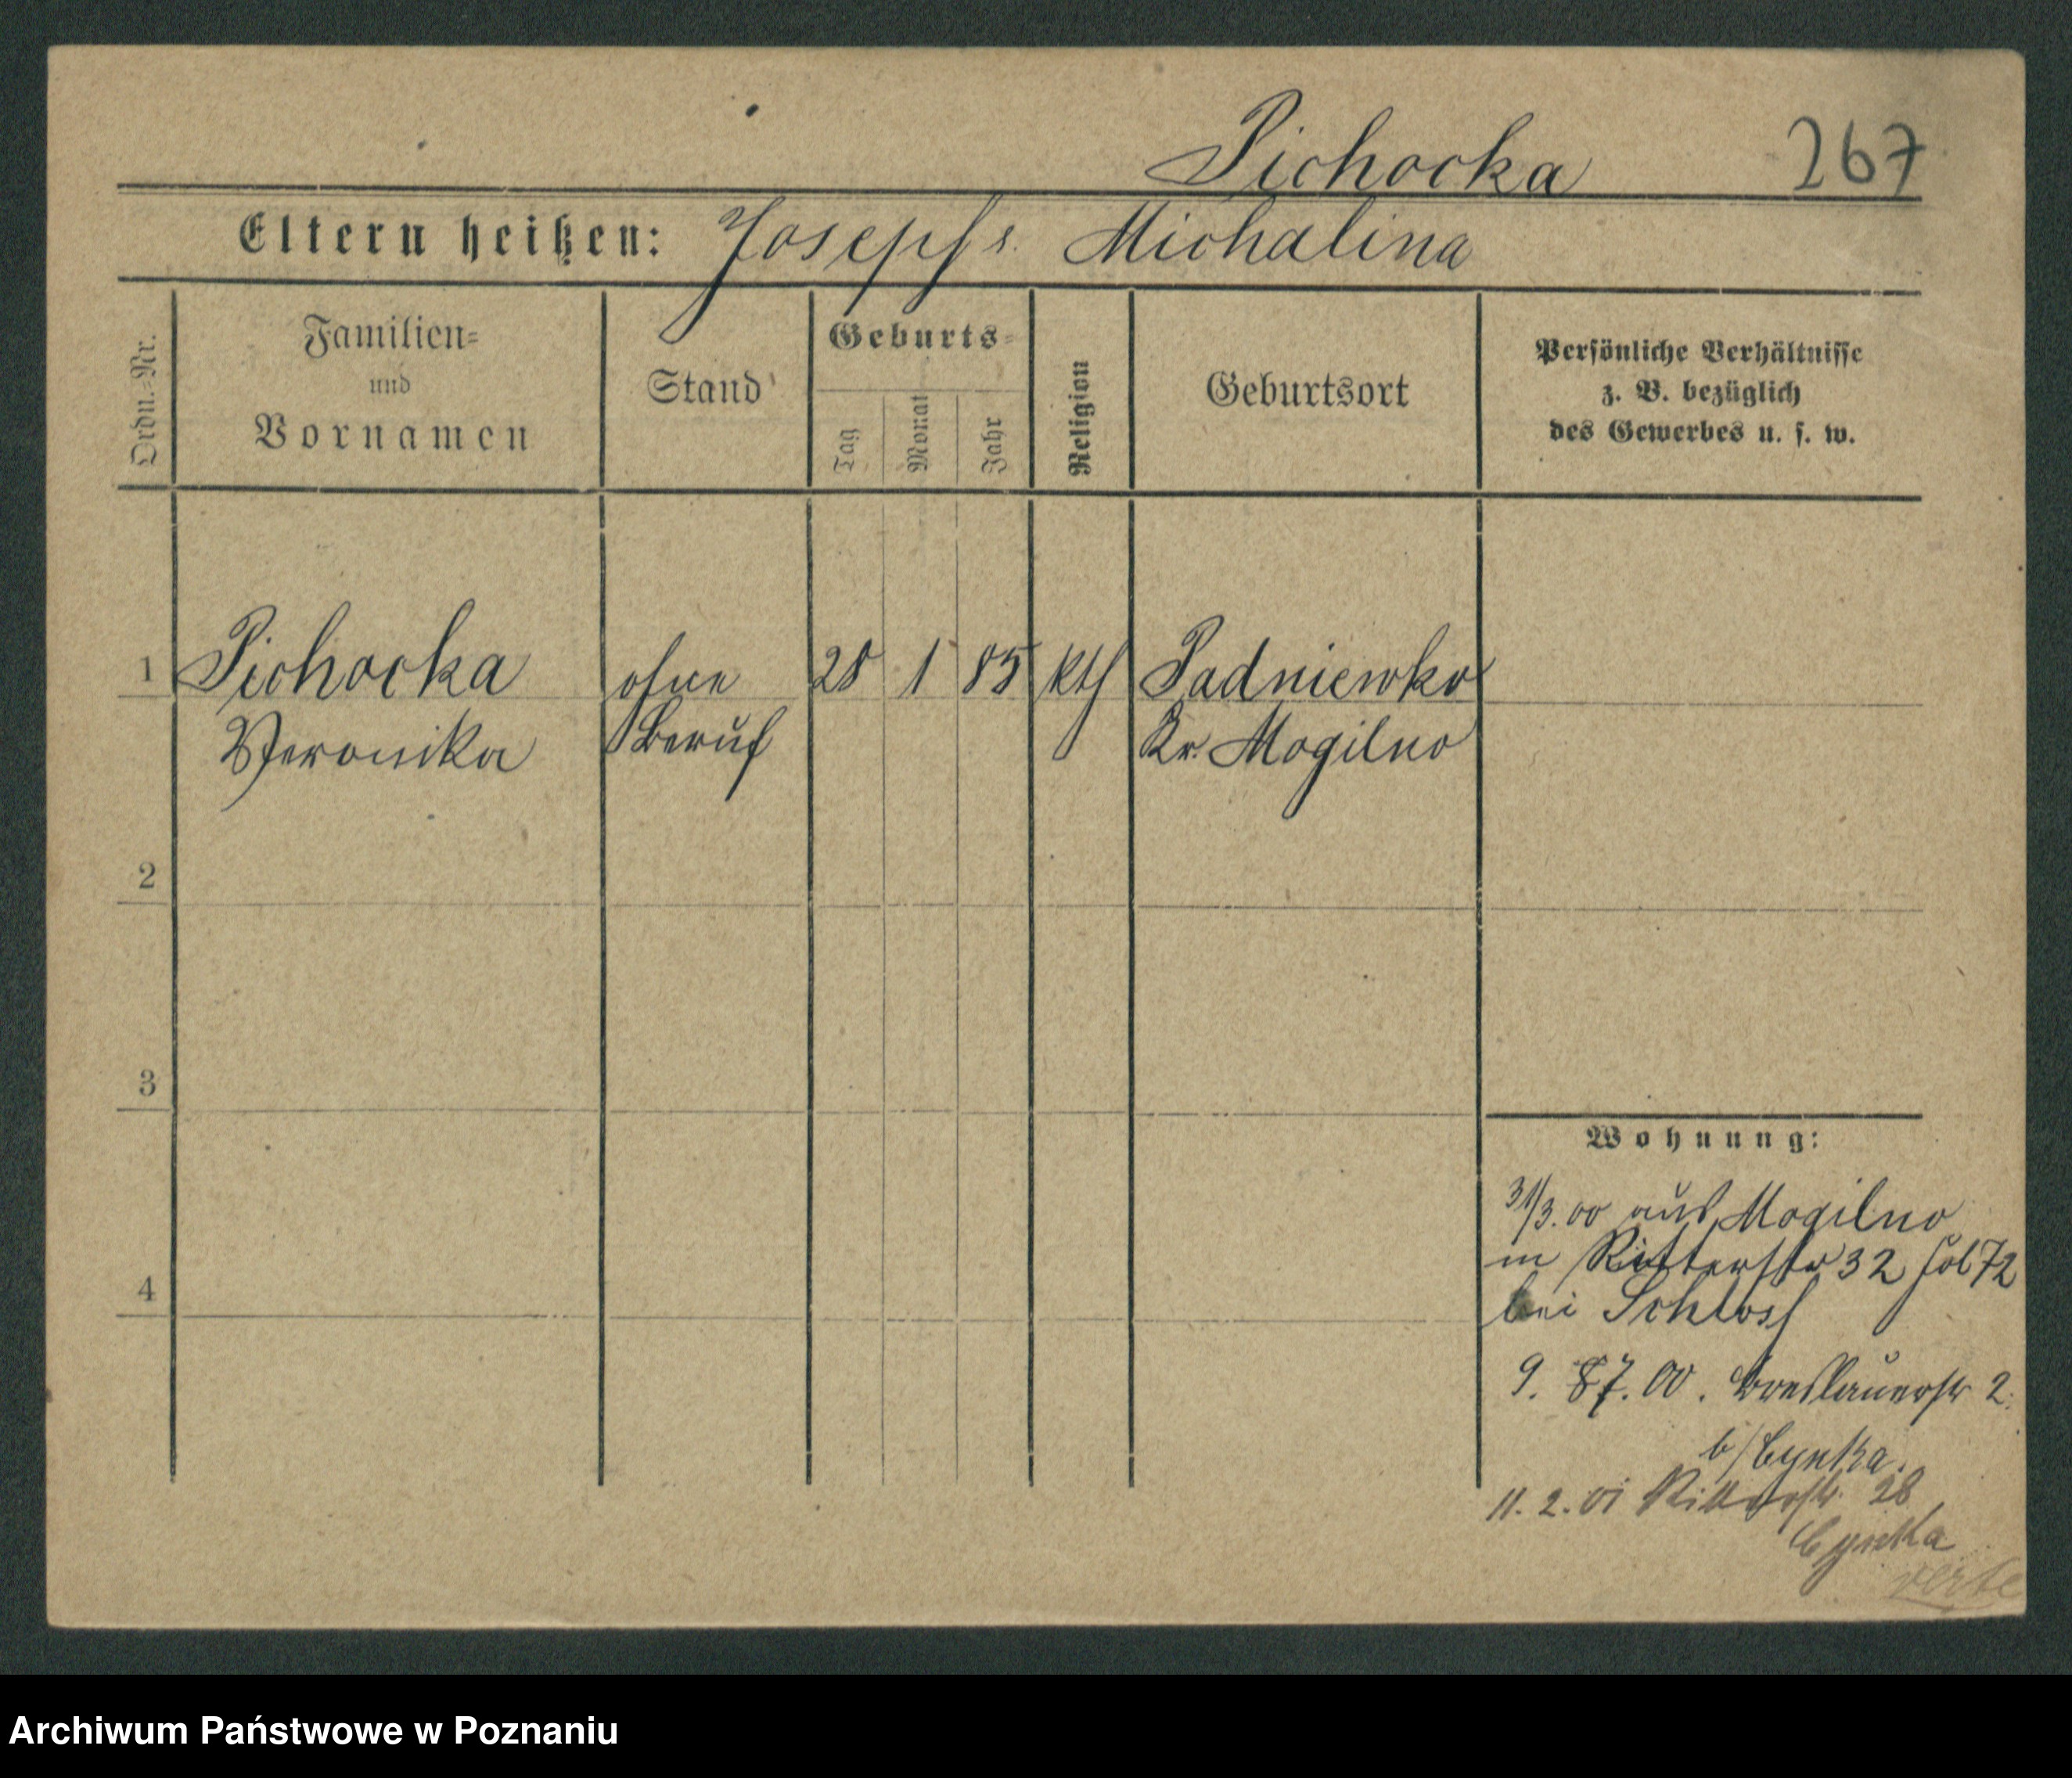 Pichocka 267
Eltern heißen: Joseph s. Michalina
Ordn.-Nr.
Familien=
und
Vornamen
Stand
Geburts=
Tag
Monat
Jahr
Religion
Geburtsort
Persönliche Verhältnisse
z. B. bezüglich
des Gewerbes u. s. w.
1 Pichocka ohne 28 1 85 kth Padniewko
Veronika Beruf Kr. Mogilno
2
3
4
Wohnung:
31/3. 00 aus Mogilno
in Ritterstr 32
bei Schloss
9. 7. 00. Breslauerstr 2.
b/ Cynka.
11. 2. 01 Ritterstr. 28
Cynka
verte
Archiwum Państwowe w Poznaniu